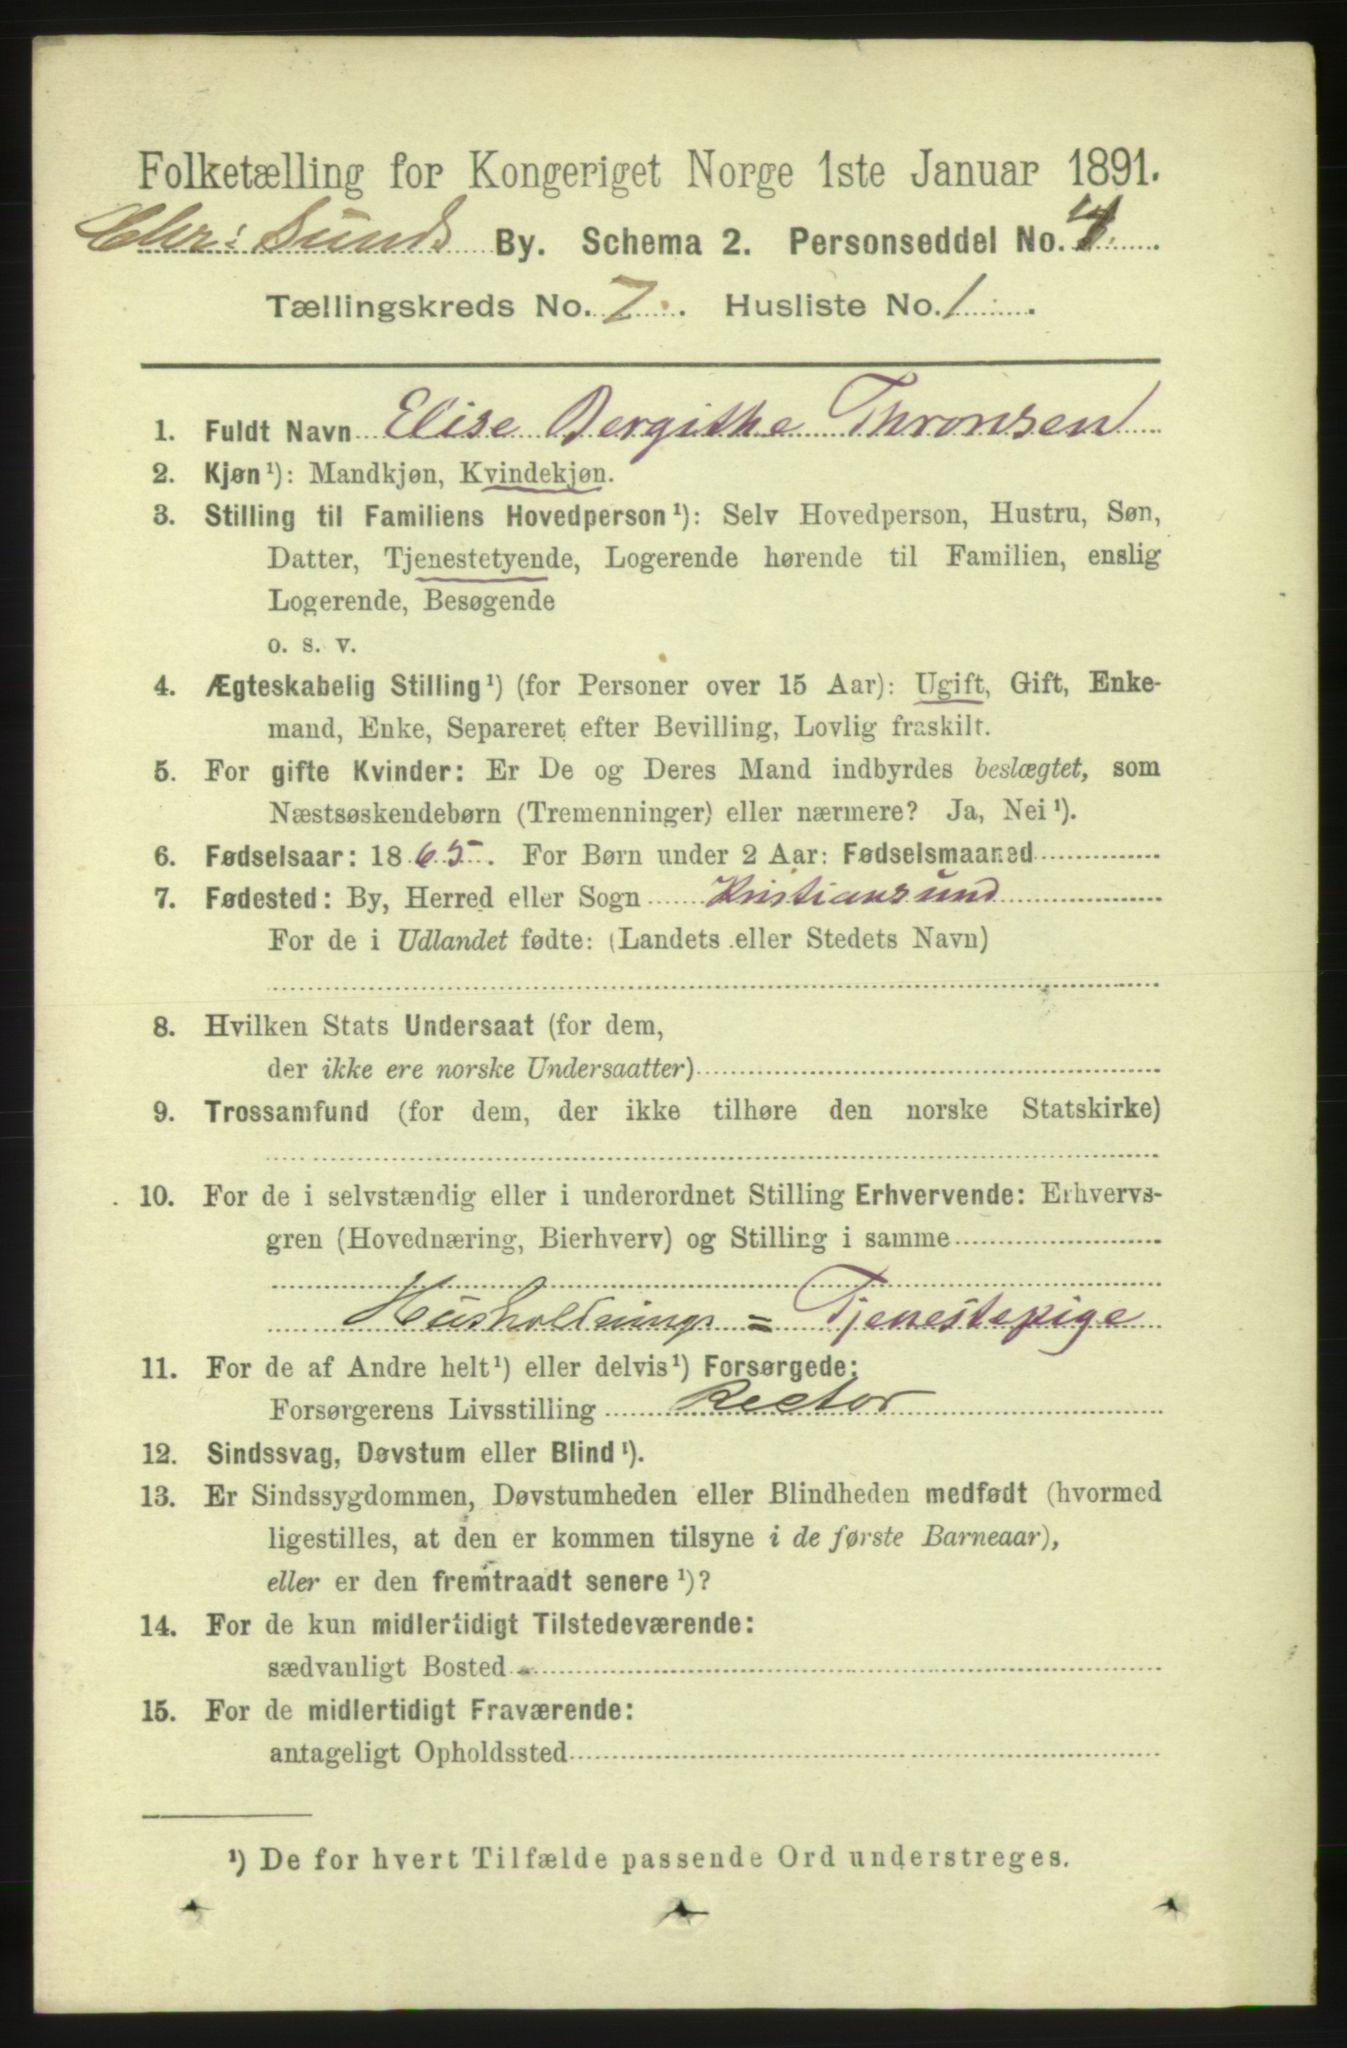 Folketælling for Kongeriget Norge 1ste Januar 1891.
Chr: Sunds By. Schema 2. Personseddel No. 4.
Tællingskreds No. 7. Husliste No. 1.
1. Fuldt Navn Elise Bergithe Thronsen
2. Kjøn¹): Mandkjøn, Kvindekjøn.
3. Stilling til Familiens Hovedperson¹): Selv Hovedperson, Hustru, Søn,
Datter, Tjenestetyende, Logerende hørende til Familien, enslig
Logerende, Besøgende
o. s. v.
4. Ægteskabelig Stilling¹) (for Personer over 15 Aar): Ugift, Gift, Enke-
mand, Enke, Separeret efter Bevilling, Lovlig fraskilt.
5. For gifte Kvinder: Er De og Deres Mand indbyrdes beslægtet, som
Næstsøskendebørn (Tremenninger) eller nærmere? Ja, Nei¹).
6. Fødselsaar: 1865. For Børn under 2 Aar: Fødselsmaaned
7. Fødested: By, Herred eller Sogn Kristiansund
For de i Udlandet fødte: (Landets eller Stedets Navn)
8. Hvilken Stats Undersaat (for dem,
der ikke ere norske Undersaatter)
9. Trossamfund (for dem, der ikke tilhøre den norske Statskirke)
10. For de i selvstændig eller i underordnet Stilling Erhvervende: Erhvervs-
gren (Hovednæring, Bierhverv) og Stilling i samme
Husholdnings = Tjenestepige
11. For de af Andre helt¹) eller delvis¹) Forsørgede:
Forsørgerens Livsstilling Rector
12. Sindssvag, Døvstum eller Blind¹).
13. Er Sindssygdommen, Døvstumheden eller Blindheden medfødt (hvormed
ligestilles, at den er kommen tilsyne i de første Barneaar),
eller er den fremtraadt senere¹)?
14. For de kun midlertidigt Tilstedeværende:
sædvanligt Bosted
15. For de midlertidigt Fraværende:
antageligt Opholdssted
¹) De for hvert Tilfælde passende Ord understreges.